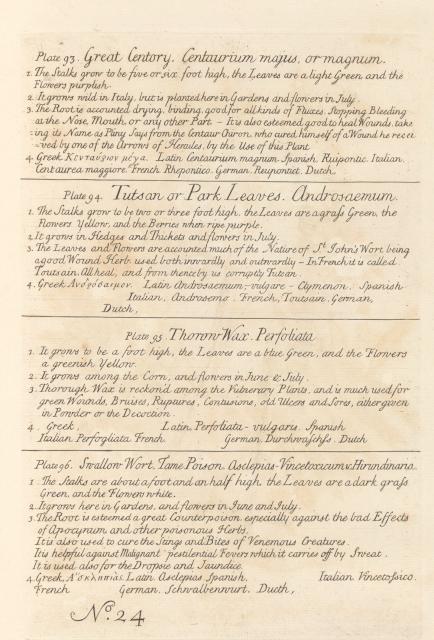 Plate 93. Great Centory. Centaurium majus, or magnum.
1. The Stalks grow to be five or six foot high, the Leaves are a light Green and the
Flowers purplish.
2. It grows wild in Italy, but is planted here in Gardens and flowers in July.
3. The Root is accounted drying, binding, good for all kinds of Fluxes, Stopping Bleeding
at the Nose, Mouth, or any other Part - It is also esteemed good to heal Wounds, tak-
ing its Name as Pliny Says from the Centaur Chiron, who cured himself of a Wound he recei
-ved by one of the Arrows of Hercules, by the Use of this Plant
4. Greek, Κενταύριον μέγα. Latin, Centaurium magnum. Spanish, Ruipontic. Italian,
Centaurea maggiore. French, Rhepontico. German, Reupontict. Dutch,
Plate 94. Tutsan or Park Leaves. Androsaemum.
1. The Stalks grow to be two or three foot high, the Leaves are a grass Green, the
Flowers Yellow, and the Berries when ripe purple.
2. It grows in Hedges and Thickets and flowers in July.
3. The Leaves and Flowers are accounted much of the Nature of St. John's Wort being
a good Wound Herb used both inwardly and outwardly - In French it is called
Toutsain, Allheal, and from thence by us corruptly Tutsan.
4. Greek, Latin, Androsaemum, vulgare - Clymenon, Spanish
Italian, Androsemo. French, Toutsain, German,
Dutch,
Plate 95. Thorow Wax. Perfoliata
1. It grows to be a foot high, the Leaves are a blue Green, and the Flowers
a greenish Yellow.
2. It grows among the Corn, and flowers in June & July.
3. Thorough Wax is reckond among the Vulnerary Plants, and is much used for
green Wounds, Bruises, Ruptures, Contusions, old Ulcers and Sores, either given
in Powder or the Decoction.
4. Greek, Latin, Perfoliata - vulgaris. Spanish
Italian Perfogliata French German, Durchwachss. Dutch
Plate 96. Swallow Wort. Tame Poison. Asclepias-Vincetoxicum v. Hirundinaria
1. The Stalks are about a foot and an half high, the Leaves are a dark grass
Green, and the Flowers white.
2. It grows here in Gardens, and flowers in June and July.
3. The Root is esteemed a great Counterpoison, especially against the bad Effects
of Apocynum and other poisonous Herbs.
It is also used to cure the Stings and Bites of Venemous Creatures.
It is helpful against Malignant pestilential Fevers which it carries off by Sweat.
It is used also for the Dropsie and Jaundice.
4. Greek, Ἀσκληπιὰς. Latin, Asclepias, Spanish, Italian, Vincetossico.
French German, Schwalbenwurt. Ducth,
No. 24